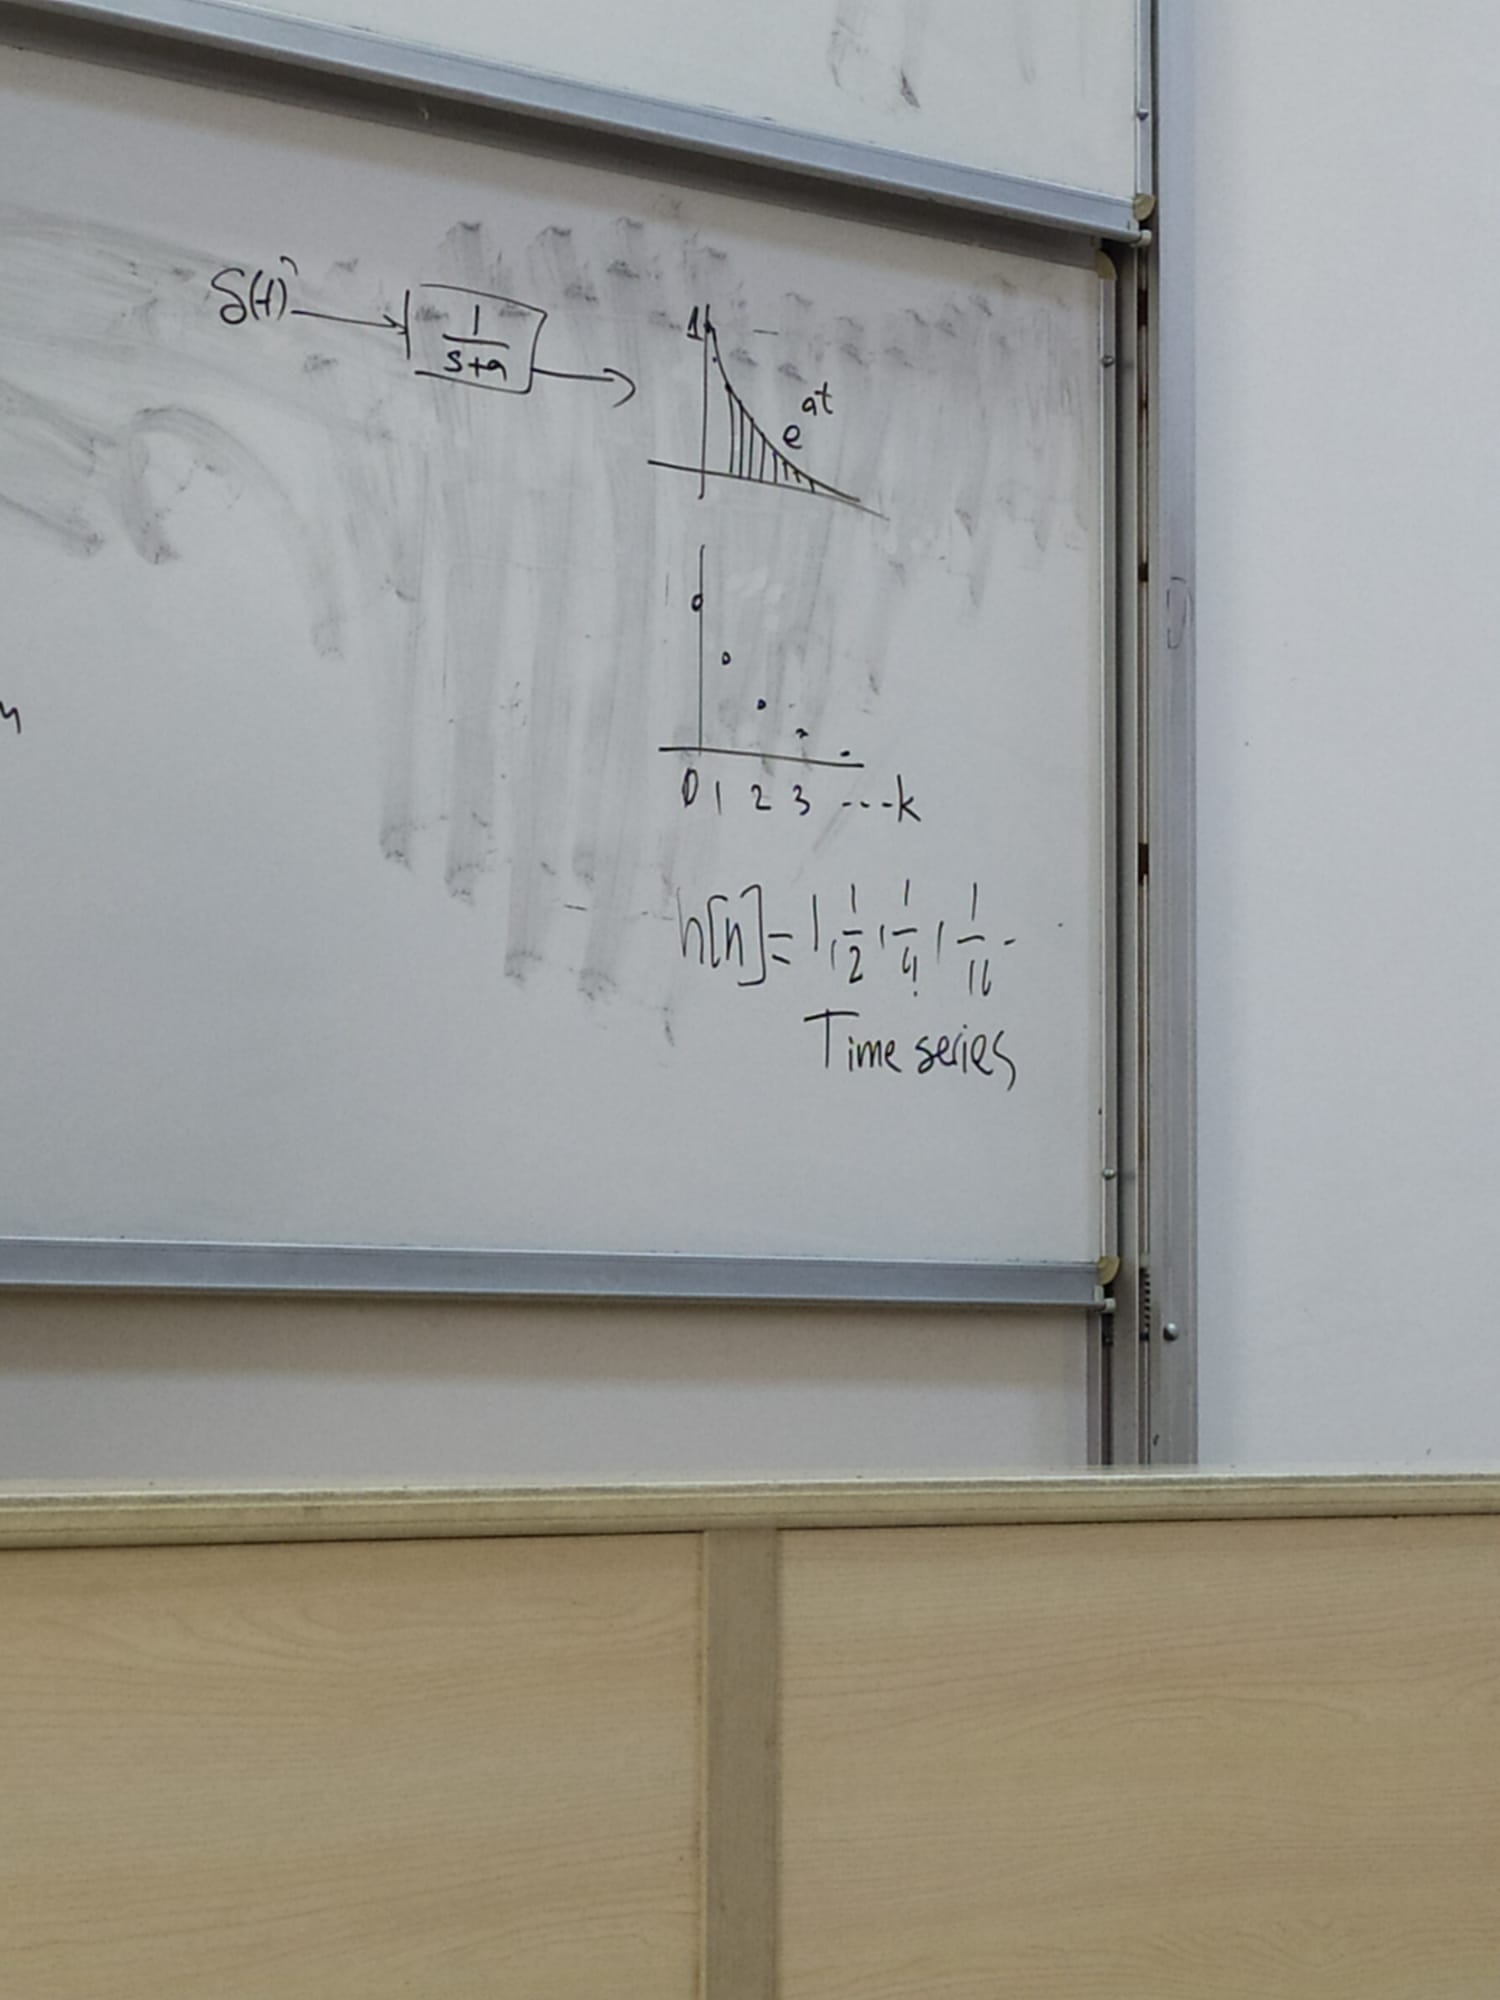 δ(t)
1/(s+a)
1
e^at
0 1 2 3 ---k
h[n]= 1, 1/2, 1/4, 1/16 -
Time series